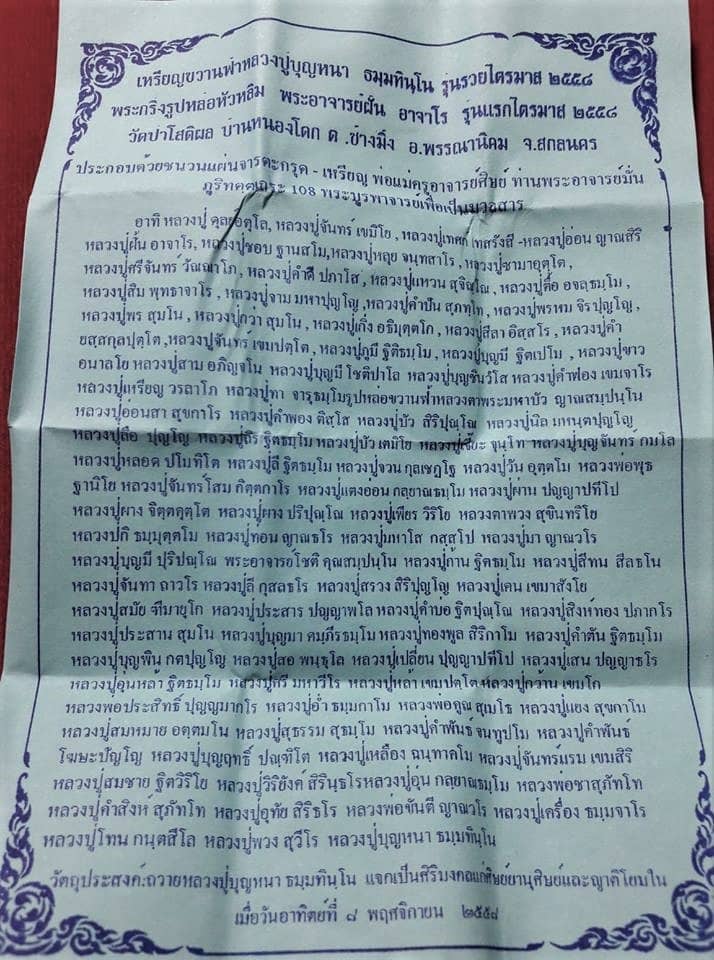 เหรียญขวานฟ้าหลวงปู่บุญหนา ธมฺมทินฺโน รุ่นรวยไตรมาส ๒๕๕๘
พระกริ่งรูปหล่อหัวหลิม พระอาจารย์ฝั้น อาจาโร รุ่นแรกไตรมาส ๒๕๕๘
วัดป่าโสติผล บ้านหนองโดก ต.ช้างมิ่ง อ.พรรณานิคม จ.สกลนคร
ประกอบด้วยชนวนแผ่นจารตะกรุด - เหรียญ พ่อแม่ครูอาจารย์ศิษย์ ท่านพระอาจารย์มั่น
ภูริทตฺตเถระ 108 พระบูรพาจารย์เพื่อเป็นมวลสาร
อาทิ หลวงปู่ ดุลย์อตุโล, หลวงปู่จันทร์ เขมิโย, หลวงปู่เทศก์ เทสรังสี -หลวงปู่อ่อน ญาณสิริ
หลวงปู่ฝั้น อาจาโร, หลวงปู่ชอบ ฐานสโม,หลวงปู่หลุย จนฺทสาโร, หลวงปู่ชามาอุตฺโต,
หลวงปู่ศรีจันทร์ วัณฺณาโภ, หลวงปู่คำดี ปภาโส, หลวงปู่แหวน สุจิณฺโณ, หลวงปู่ตื้อ อจลธมฺโม,
หลวงปู่สิม พุทธาจาโร, หลวงปู่จาม มหาปุญฺโญ ,หลวงปู่คำปัน สุภทฺโท, หลวงปู่พรหม จิรปุญฺโญ,
หลวงปู่พร สุมโน, หลวงปู่กว่า สุมโน, หลวงปู่เกิ่ง อธิมุตฺตโก, หลวงปู่สีลา อิสฺสโร, หลวงปู่คำ
ยสฺสกุลปุตฺโต,หลวงปู่จันทร์ เขมปตฺโต, หลวงปู่ภูมี ฐิติธมฺโม, หลวงปู่บุญมี ฐิตเปโม, หลวงปู่ขาว
อนาลโย หลวงปู่สาม อภิญฺจโน หลวงปู่บุญมี โชติปาโล หลวงปู่บุญชินวํโส หลวงปู่คำฟอง เขมจาโร
หลวงปู่เหรียญ วรลาโภ หลวงปู่ทา จารุธมฺโมรูปหล่อขวานฟ้าหลวงตาพระมหาบัว ญาณสมฺปนฺโน
หลวงปู่อ่อนสา สุขกาโร หลวงปู่คำพอง ติสฺโส หลวงปู่บัว สิริปุณฺโณ หลวงปู่นิล มหนฺตปุญฺโญ
หลวงปู่ลือ ปุญฺโญ หลวงปู่ถิร ฐิตธมฺโม หลวงปู่บัว เตมิโย หลวงปู่เจี๊ยะ จุนฺโท หลวงปู่บุญจันทร์ กมโล
หลวงปู่หลอด ปโมทิโต หลวงปู่ลี ฐิตธมฺโม หลวงปู่จวน กุลเชฏโฐ หลวงปู่วัน อุตฺตโม หลวงพ่อพุธ
ฐานิโย หลวงปู่จันทร์โสม กิตฺตกาโร หลวงปู่แตงอ่อน กลฺยาณธมฺโม หลวงปู่ผ่าน ปญฺญาปทีโป
หลวงปู่ผาง จิตฺตคุตฺโต หลวงปู่ผาง ปริปุณฺโณ หลวงปู่เพียร วิริโย หลวงตาพวง สุขินทริโย
หลวงปู่ภิ ธมฺมุตฺตโม หลวงปู่ท่อน ญาณธโร หลวงปู่มหาโส กสฺสโป หลวงปู่มา ญาณวโร
หลวงปู่บุญมี ปุริปณฺโณ พระอาจารย์โชติ คุณสมฺปนฺโน หลวงปู่ก้าน ฐิตธมฺโม หลวงปู่สีทน สีลธโน
หลวงปู่จันทา ถาวโร หลวงปู่ลี กุสลธโร หลวงปู่สรวง สิริปุญฺโญ หลวงปู่เคน เขมาสังโย
หลวงปู่สมัย ทีมายุโก หลวงปู่ประสาร ปญฺญาพโล หลวงปู่คำบ่อ ฐิตปุณฺโณ หลวงปู่สิงห์ทอง ปภากโร
หลวงปู่ประสาน สุมโน หลวงปู่บุญมา คมฺภีรธมฺโม หลวงปู่ทองพูล สิริกาโม หลวงปู่คำตัน ฐิตธมฺโม
หลวงปู่บุญพิน กตปุญฺโญ หลวงปู่สอ พนฺธุโล หลวงปู่เปลี่ยน ปญฺญาปทีโป หลวงปู่แสน ปญฺญาธโร
หลวงปู่อุ่นหล้า ฐิตธมฺโม หลวงปู่ศรี มหาวีโร หลวงปู่หล้า เขมปตฺโต หลวงปู่กว้าน เขมโก
หลวงพ่อประสิทธิ์ ปุญฺญมากโร หลวงปู่อ่ำ ธมฺมกาโม หลวงพ่อคูณ สุเมโธ หลวงปู่แยง สุขกาโม
หลวงปู่สมหมาย อตฺตมโน หลวงปู่สุธรรม สุธมฺโม หลวงปู่คำพันธ์ จนฺทูปโม หลวงปู่คำพันธ์
โฆษะปัญฺโญ หลวงปู่บุญฤทธิ์ ปณฺฑิโต หลวงปู่เหลือง ฉนฺทาคโม หลวงปู่จันทร์แรม เขมสิริ
หลวงปู่สมชาย ฐิตวิริโย หลวงปู่วิริยังค์ สิรินฺธโรหลวงปู่อุ่น กลฺยาณธมฺโม หลวงพ่อชาสุภัทโท
หลวงปู่คำสิงห์ สุภัทโท หลวงปู่อุทัย สิริธโร หลวงพ่อขันตี ญาณวโร หลวงปู่เครื่อง ธมฺมจาโร
หลวงปู่โทน กนฺตสีโล หลวงปู่พวง สุวีโร หลวงปู่บุญหนา ธมฺมทินฺโน
วัตถุประสงค์:ถวายหลวงปู่บุญหนา ธมฺมทินฺโน แจกเป็นศิริมงคลแก่ศิษย์ยานุศิษย์และญาติโยมใน
เมื่อวันอาทิตย์ที่ ๘ พฤศจิกายน ๒๕๕๘